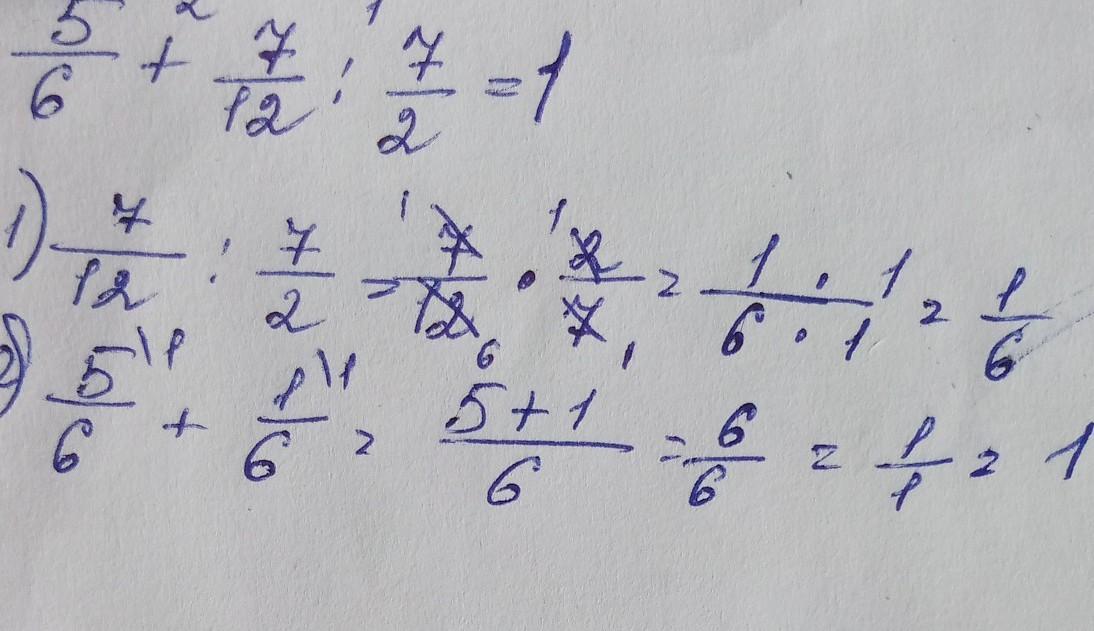 5/6 +² 7/12 :¹ 7/2 = 1
1) 7/12 : 7/2 = ¹7/12₆ · ¹2/7₁ = 1·1/6·1 = 1/6
2) 5\1/6 + 1\1/6 = 5+1/6 = 6/6 = 1/1 = 1